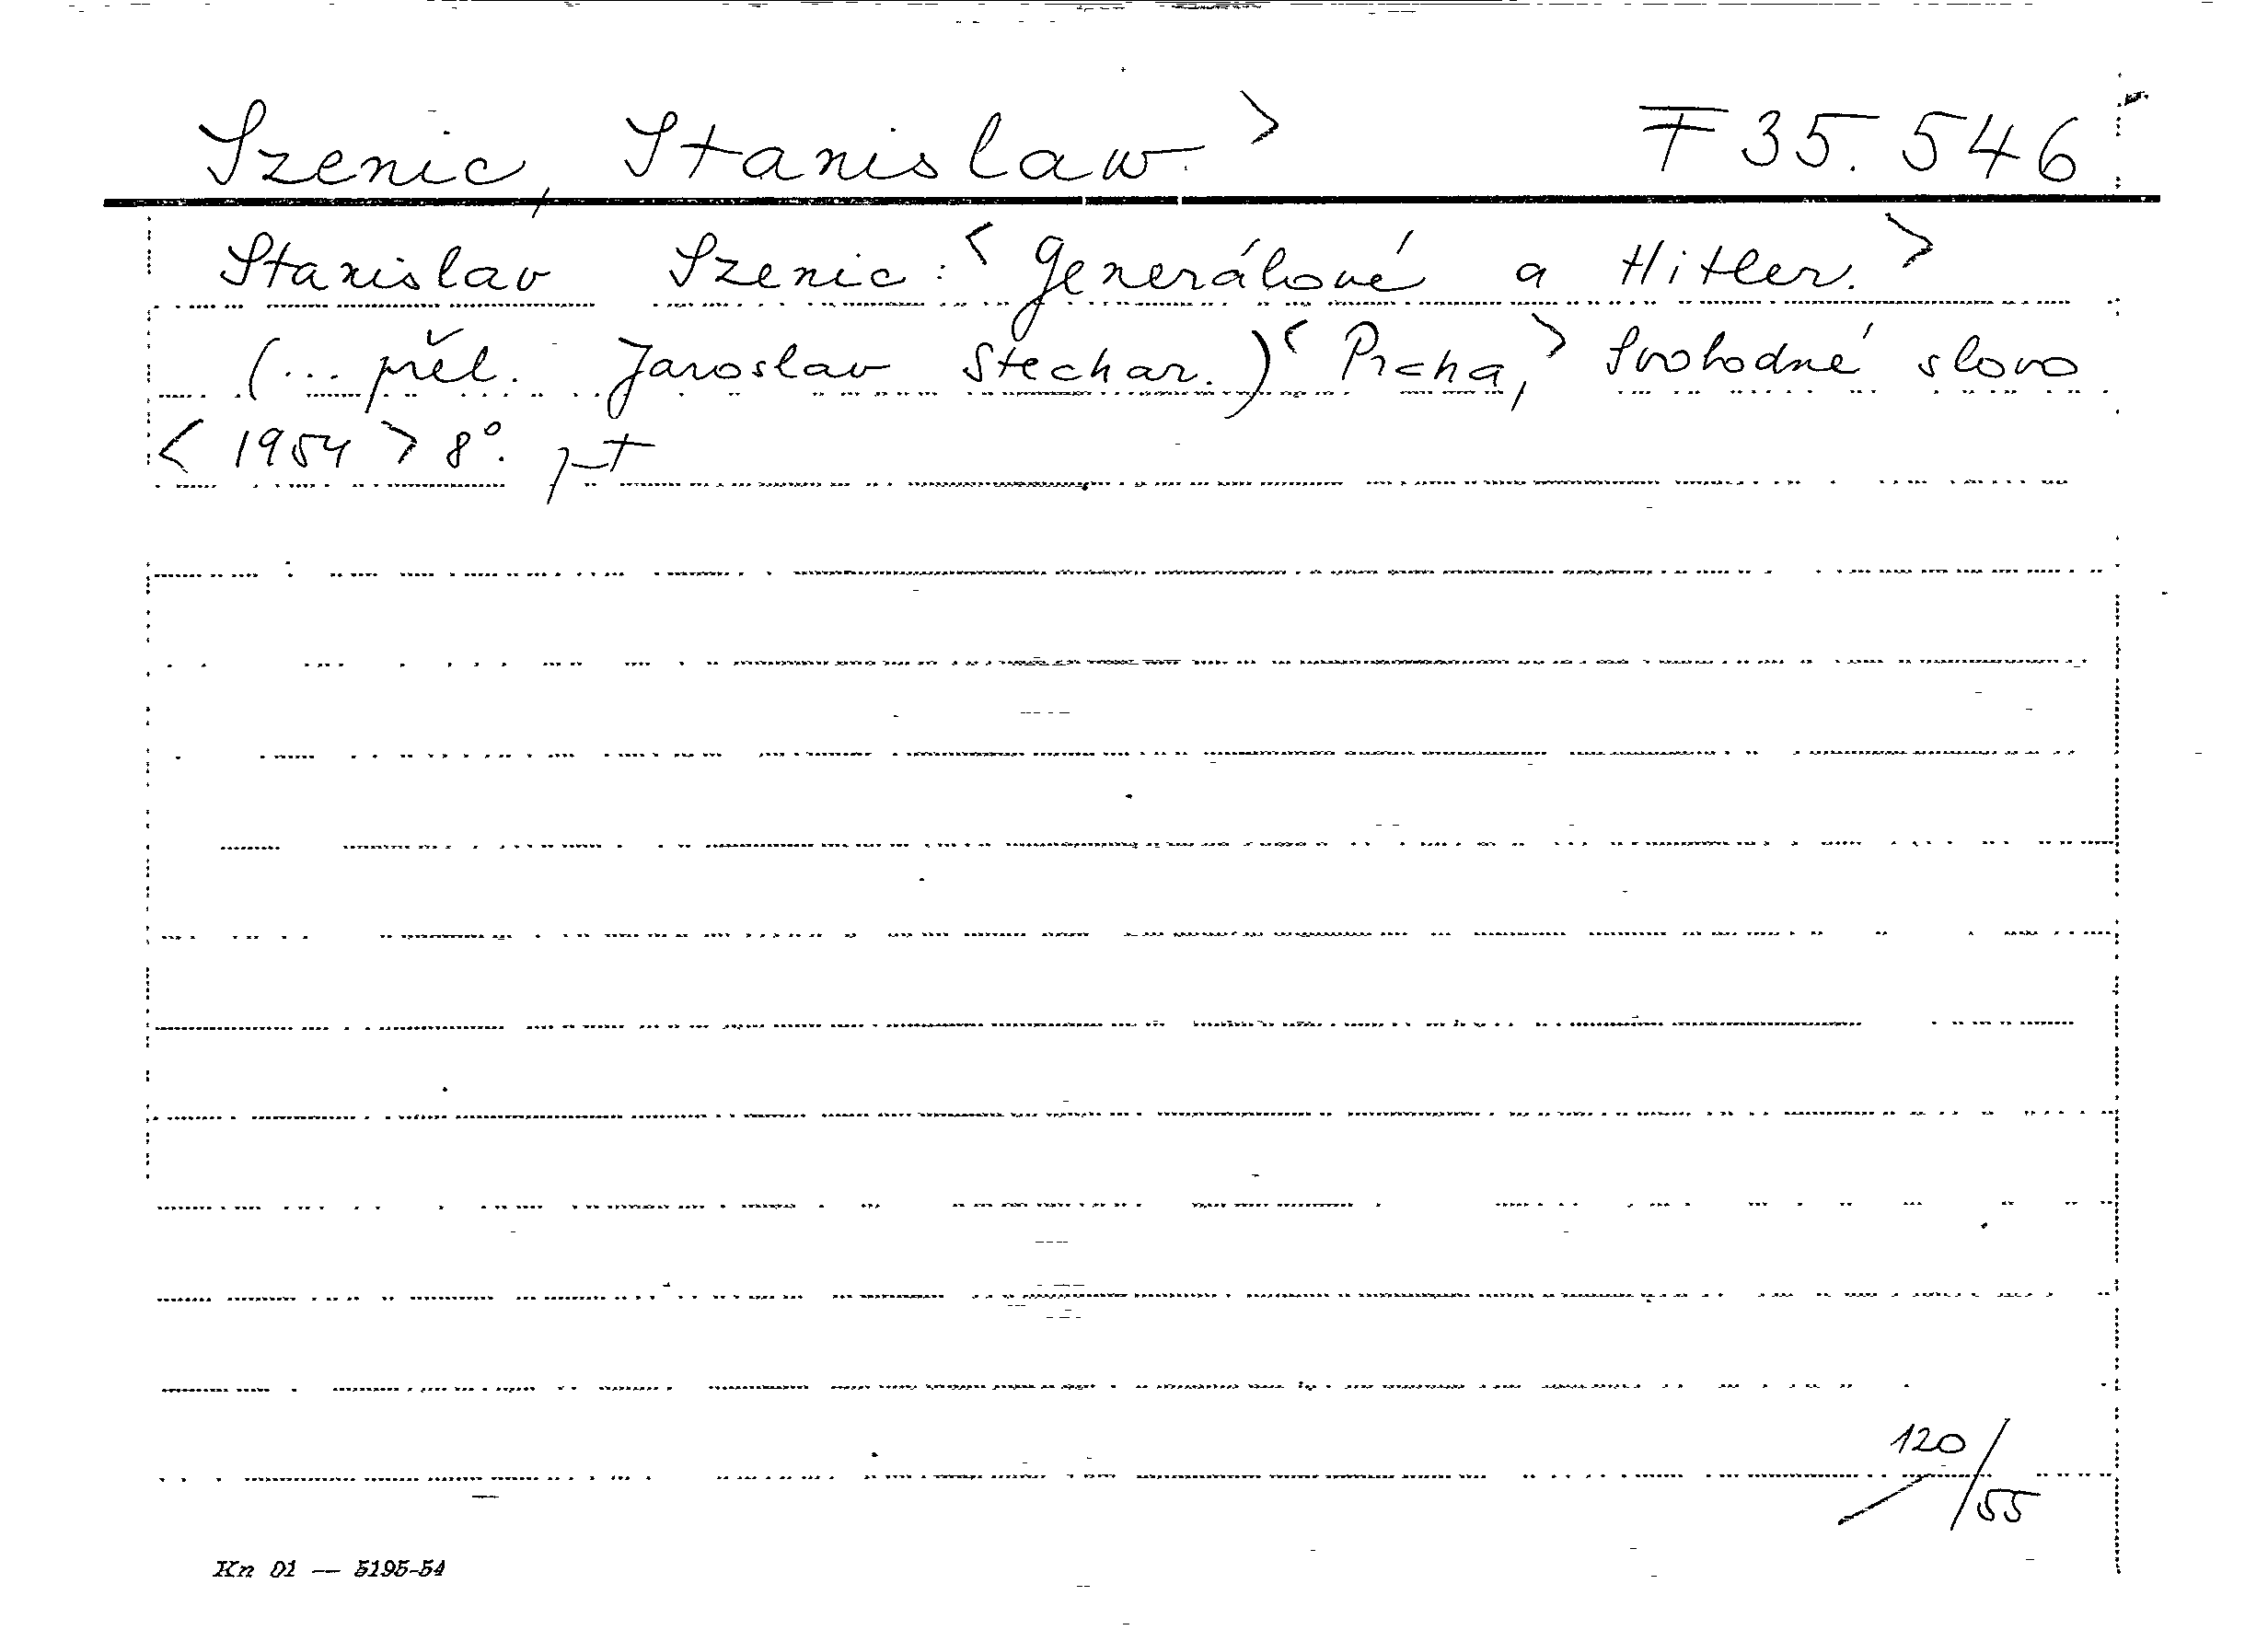 Szenic, Stanislaw. > F 35.546
Stanislav Szenic: < Generálové a Hitler. >
(... přel. Jaroslav Stechar.) < Prcha, > Svobodné slovo
< 1954 > 8°. pt
120/55
Kn 01 — 5195-54